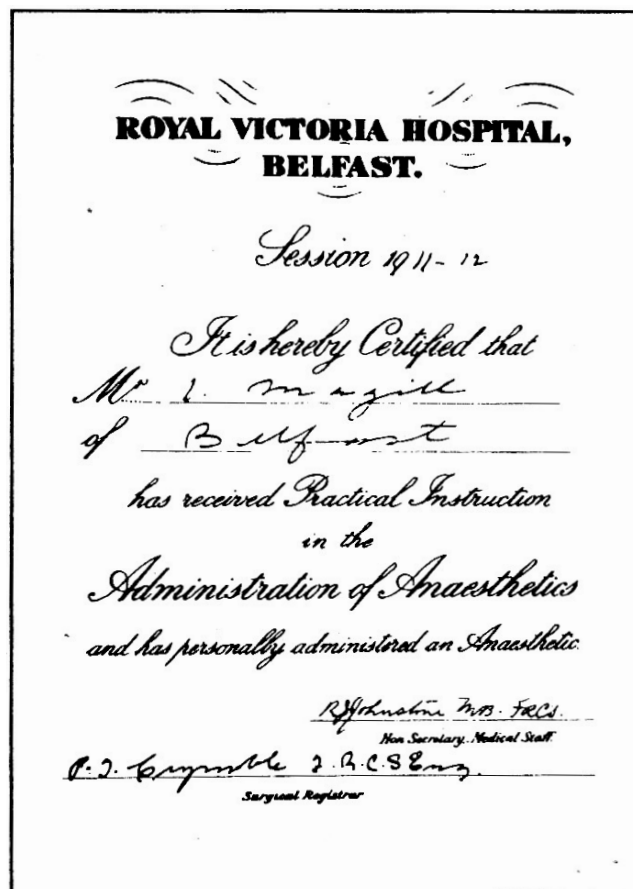 ROYAL VICTORIA HOSPITAL,
BELFAST.
Session 1911-12
It is hereby Certified that
Mr I. Magill
of Belfast
has received Practical Instruction
in the
Administration of Anaesthetics
and has personally administered an Anaesthetic.
RJJohnstone M.B. FRCS.
Hon Secretary. Medical Staff.
P. T. Crymble F.R.C.S Eng.
Surgical Registrar